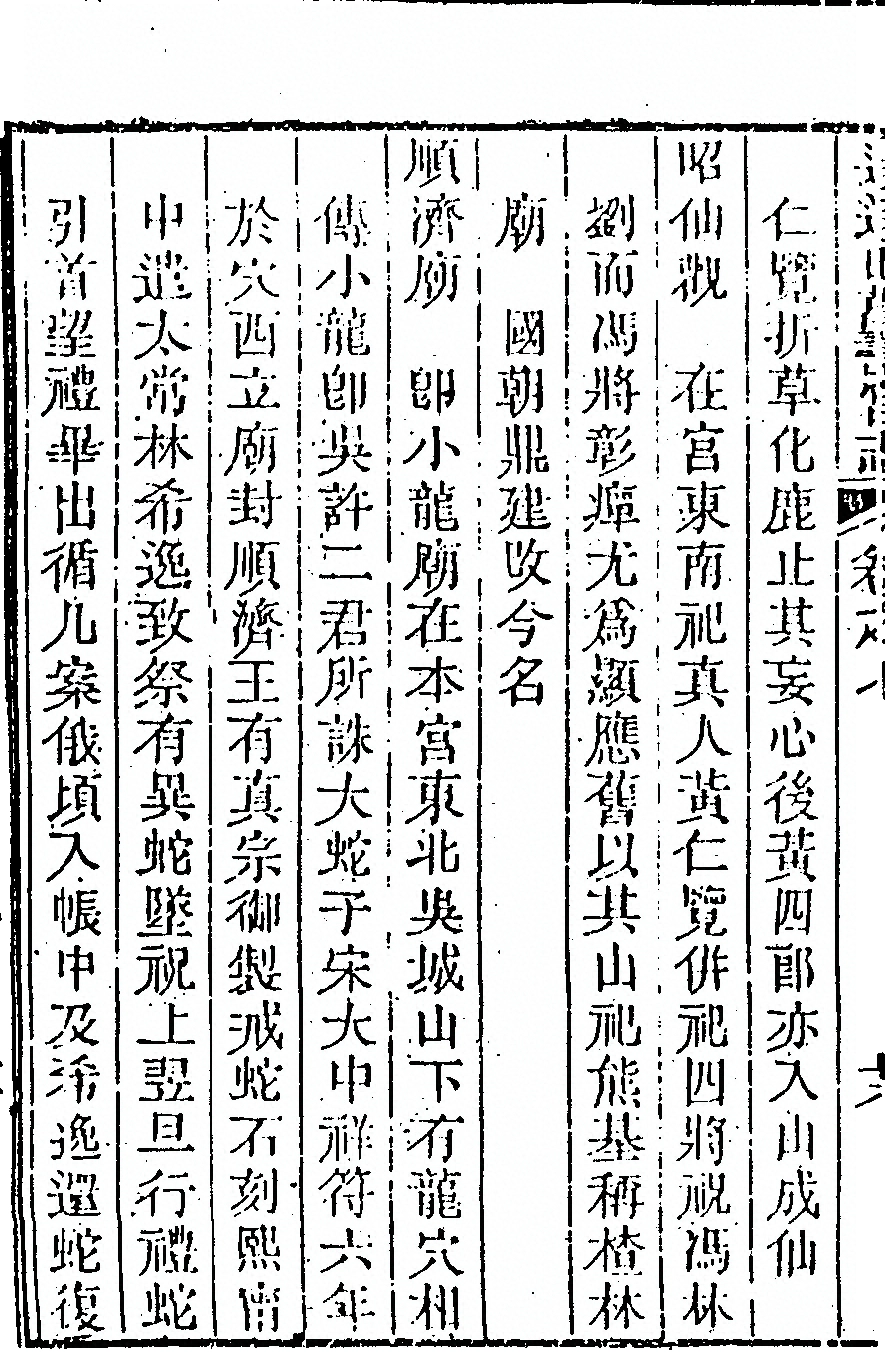 仁覽折草化鹿止其妄心後黃四郎亦入山成仙
昭仙觀　在宮東南祀真人黃仁覽併祀四將祝馮林
劉而馮將彰癉尤為顯應舊以其山祀熊基稱楂林
廟　國朝鼎建改今名
順濟廟　即小龍廟在本宮東北吳城山下有龍穴相
傳小龍即吳許二君所誅大蛇子宋大中祥符六年
於穴西立廟封順濟王有真宗御製戒蛇石刻熙甯
中遣太常林希逸致祭有異蛇墜祝上翌旦行禮蛇
引首望禮畢出循几案俄頃入帳中及希逸還蛇復